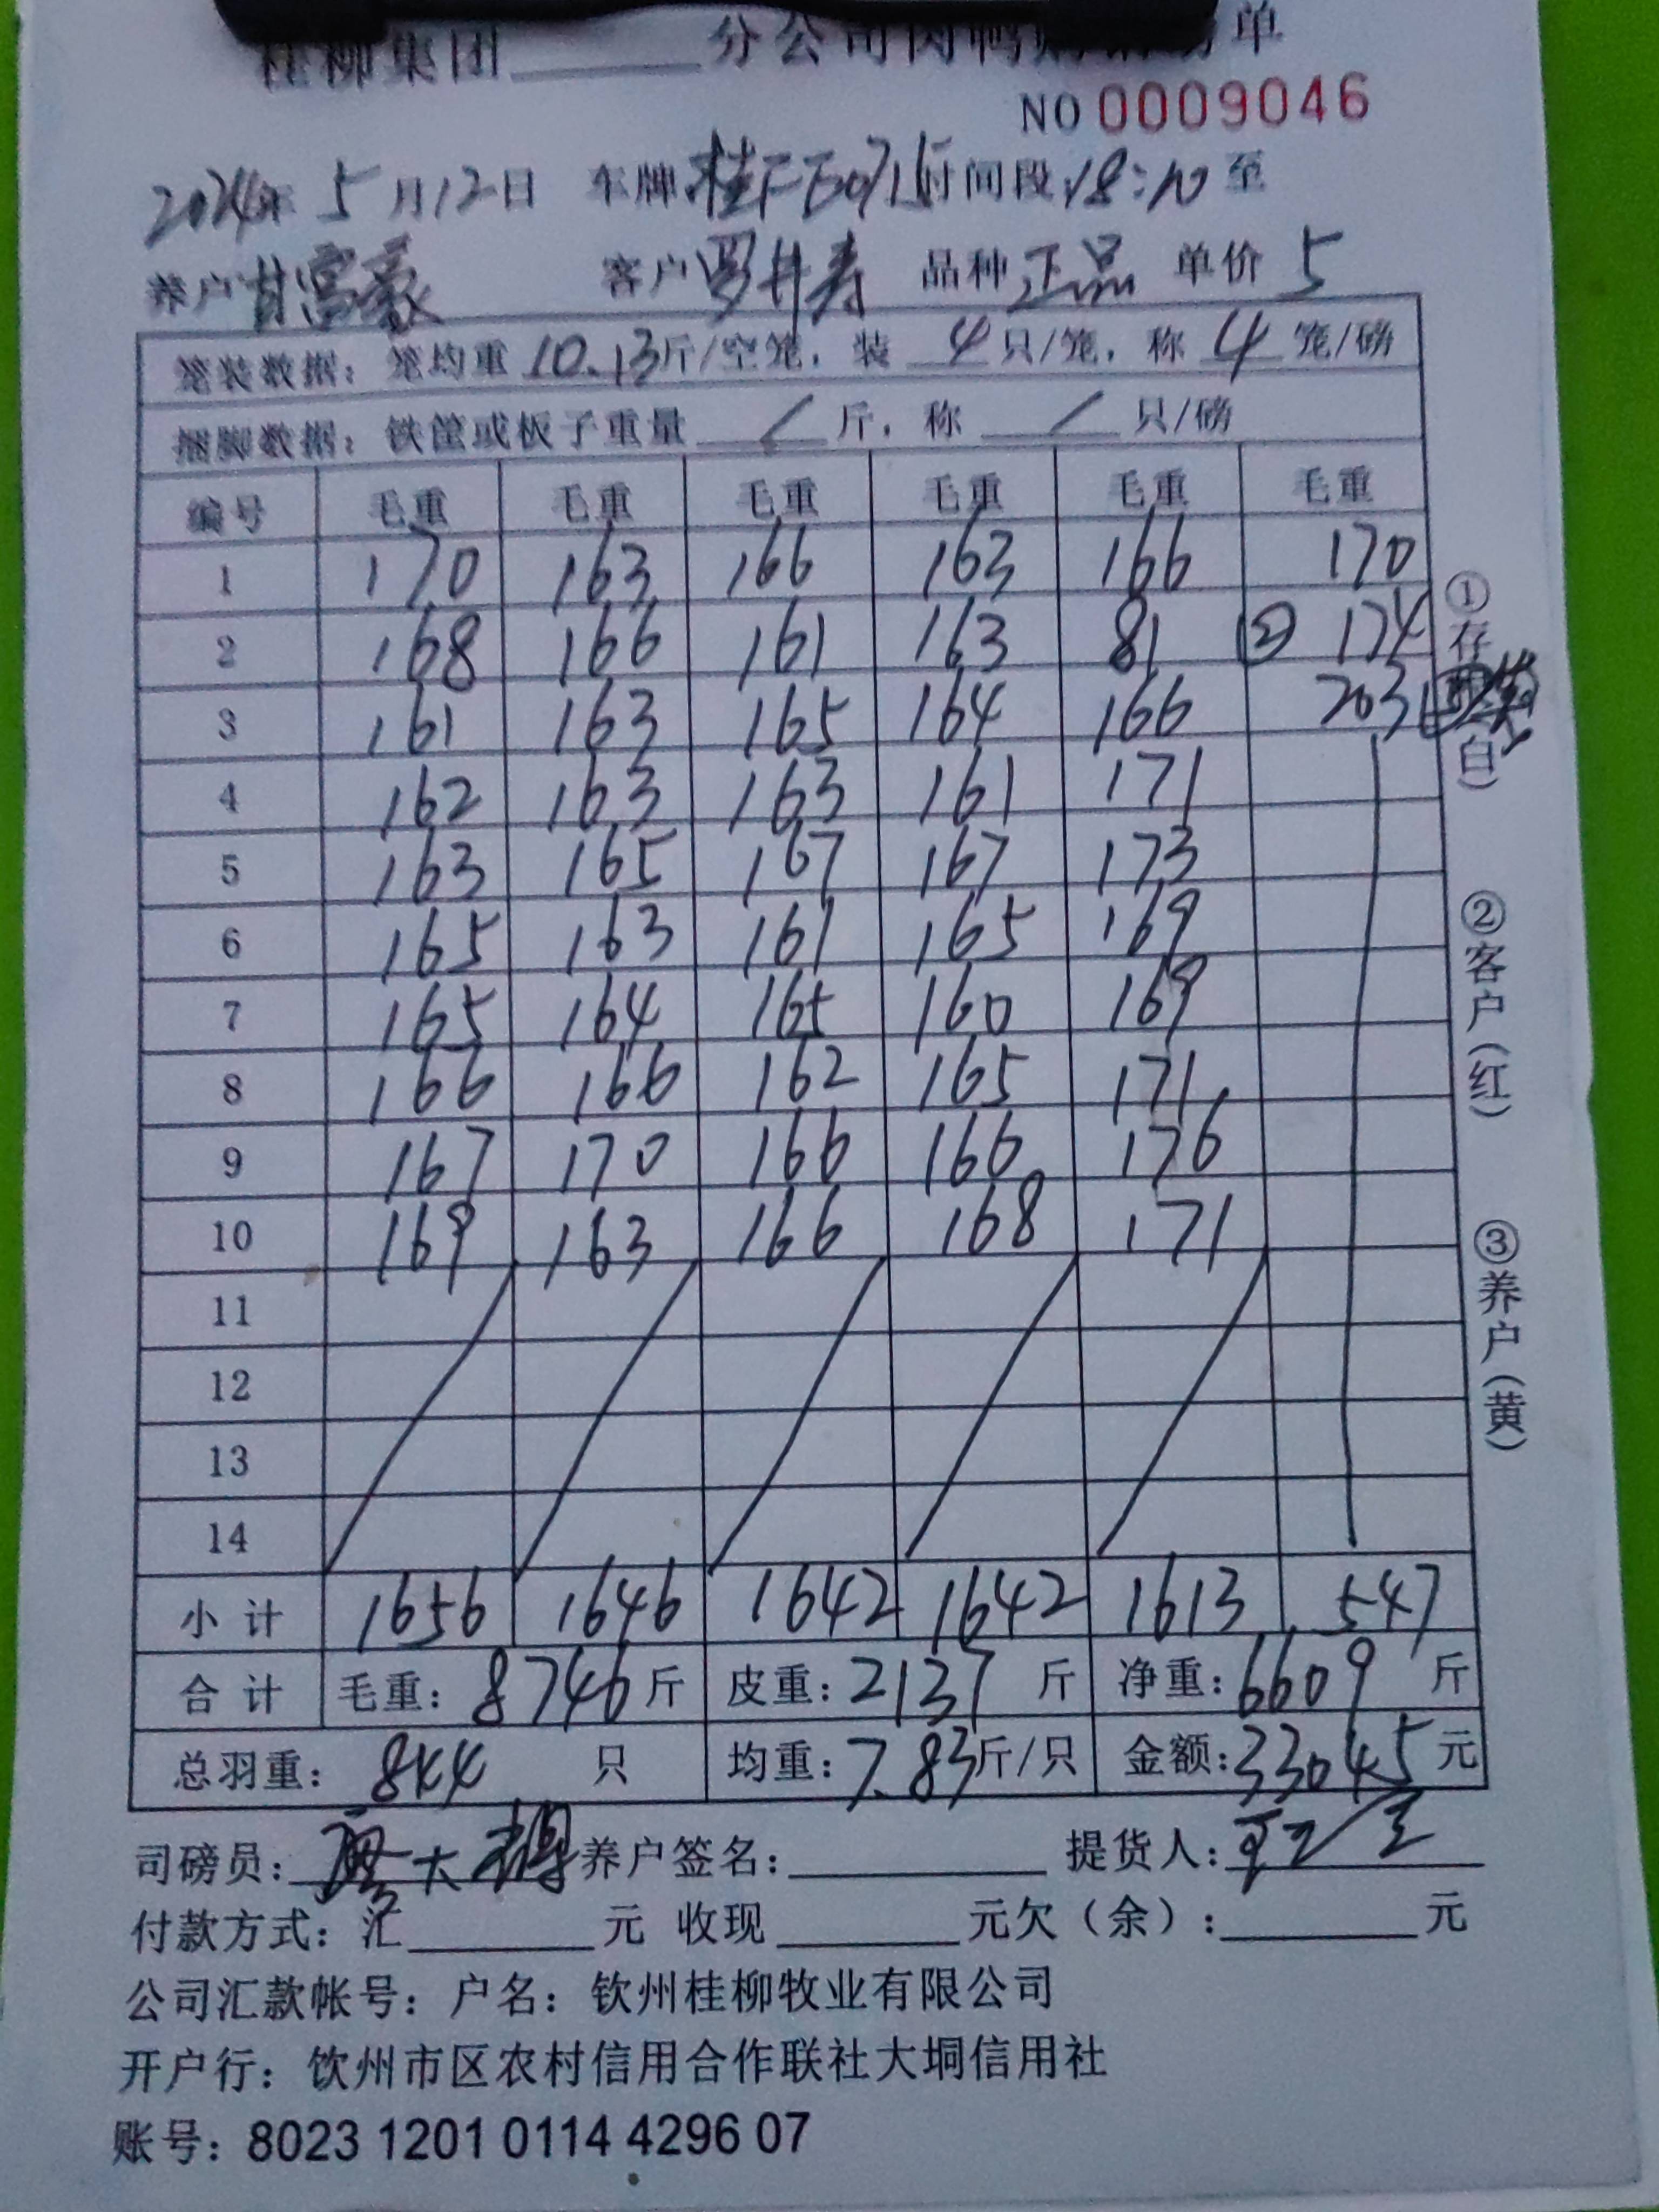 桂柳集团______分公司肉鸭 单
NO 0009046
2024年 5月12日 车牌 时间段18:10至
养户甘富豪 客户罗井寿 品种正品 单价5
笼装数据：笼均重10.13斤/空笼，装4只/笼，称4笼/磅
捆脚数据：铁筐或板子重量 / 斤，称 / 只/磅
编号 毛重 毛重 毛重 毛重 毛重 毛重
1 170 163 166 163 166 170
2 168 166 161 163 81 ② 174
3 161 163 165 164 166 203
4 162 163 163 161 171
5 163 165 167 167 173
6 165 163 161 165 169
7 165 164 165 160 169
8 166 166 162 165 171
9 167 170 166 166 176
10 169 163 166 168 171
11
12
13
14
小计 1656 1646 1642 1642 1613 547
合计 毛重：8746斤 皮重：2137斤 净重：6609斤
总羽重：844只 均重：7.83斤/只 金额：33045元
司磅员： 养户签名：______ 提货人：
付款方式：汇______元 收现______元欠（余）：______元
公司汇款帐号：户名：钦州桂柳牧业有限公司
开户行：钦州市区农村信用合作联社大垌信用社
账号：8023 1201 0114 4296 07
①存 白）
②客户（红）
③养户（黄）